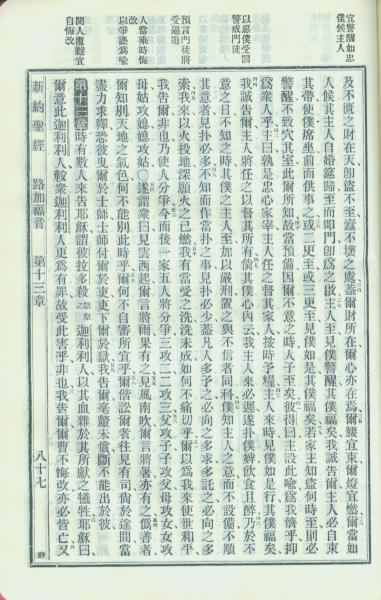 宜警醒如忠
僕候主人
以惡僕受罰
警戒門徒
預言門徒將
受逼迫
人當乘時悔
以爭訟爲喻
改
聞人遭難宜
自悔改
及不匱之財在天卽盜不至蠹不壞之處蓋爾財所在爾心亦在焉爾腰宜束爾燈宜燃爾當如
人候其主人自婚筵歸至而叩門卽爲之啟主人至見僕警醒其僕福矣我誠告爾主人必自束
其帶使僕席坐前而供事之或二更至或三更至見僕如是其僕福矣若家主知盜何時至則必
警醒不致穴其室此爾所知故當預備因爾不意之時人子至矣彼得曰主設此喻爲我儕乎抑
爲衆人乎主曰孰是忠心家宰主人任之督其家人按時予糧主人來時見僕如是行其僕福矣
我誠告爾主人將任之以督其所有倘其僕心內云我主人來必遲遂扑僕婢飮食且醉乃於不
意之日不知之時其僕之主人至加以嚴刑置之與不信者同科僕知主人之意而不設備不順
其意者見扑必多不知而作當扑之事見扑必少蓋凡人多予之必向之多求多託之必向之多
索我來以火投地深願火之已燃我有當受之洗洗未成如何不痛切乎爾以爲我來使世和平
我告爾非也乃使人分爭今而後一家五人將分爭三攻二二攻三父攻子子攻父母攻女女攻
母姑攻媳媳攻姑○遂謂衆曰見雲西起爾言將雨果有之見風南吹爾言將暑亦有之僞善者
爾知別天地之氣色何不能別此時乎爾何不自審所宜乎爾偕訟爾者往見有司尙於途間當
盡力求釋恐彼曳爾於士師士師付爾於吏吏下爾於獄我告爾毫釐未償斷不能出於彼
第十三章 時有數人來告耶穌謂彼拉多殺 迦利利人以其血雜於其所獻之犧牲耶穌曰
爾意此迦利利人較衆迦利利人更爲有罪故受此害乎非也我告爾爾曹不悔改亦必皆亡又
新約聖經 路加福音 第十三章 八十七